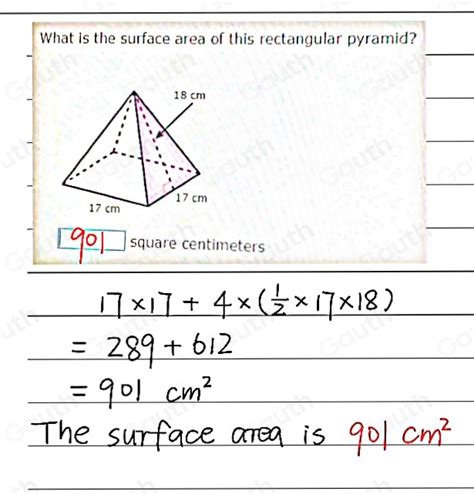 What is the surface area of this rectangular pyramid?
18 cm
17 cm
17 cm
901 square centimeters
17×17 + 4×(1/2×17×18)
= 289 + 612
= 901 cm²
The surface area is 901 cm²